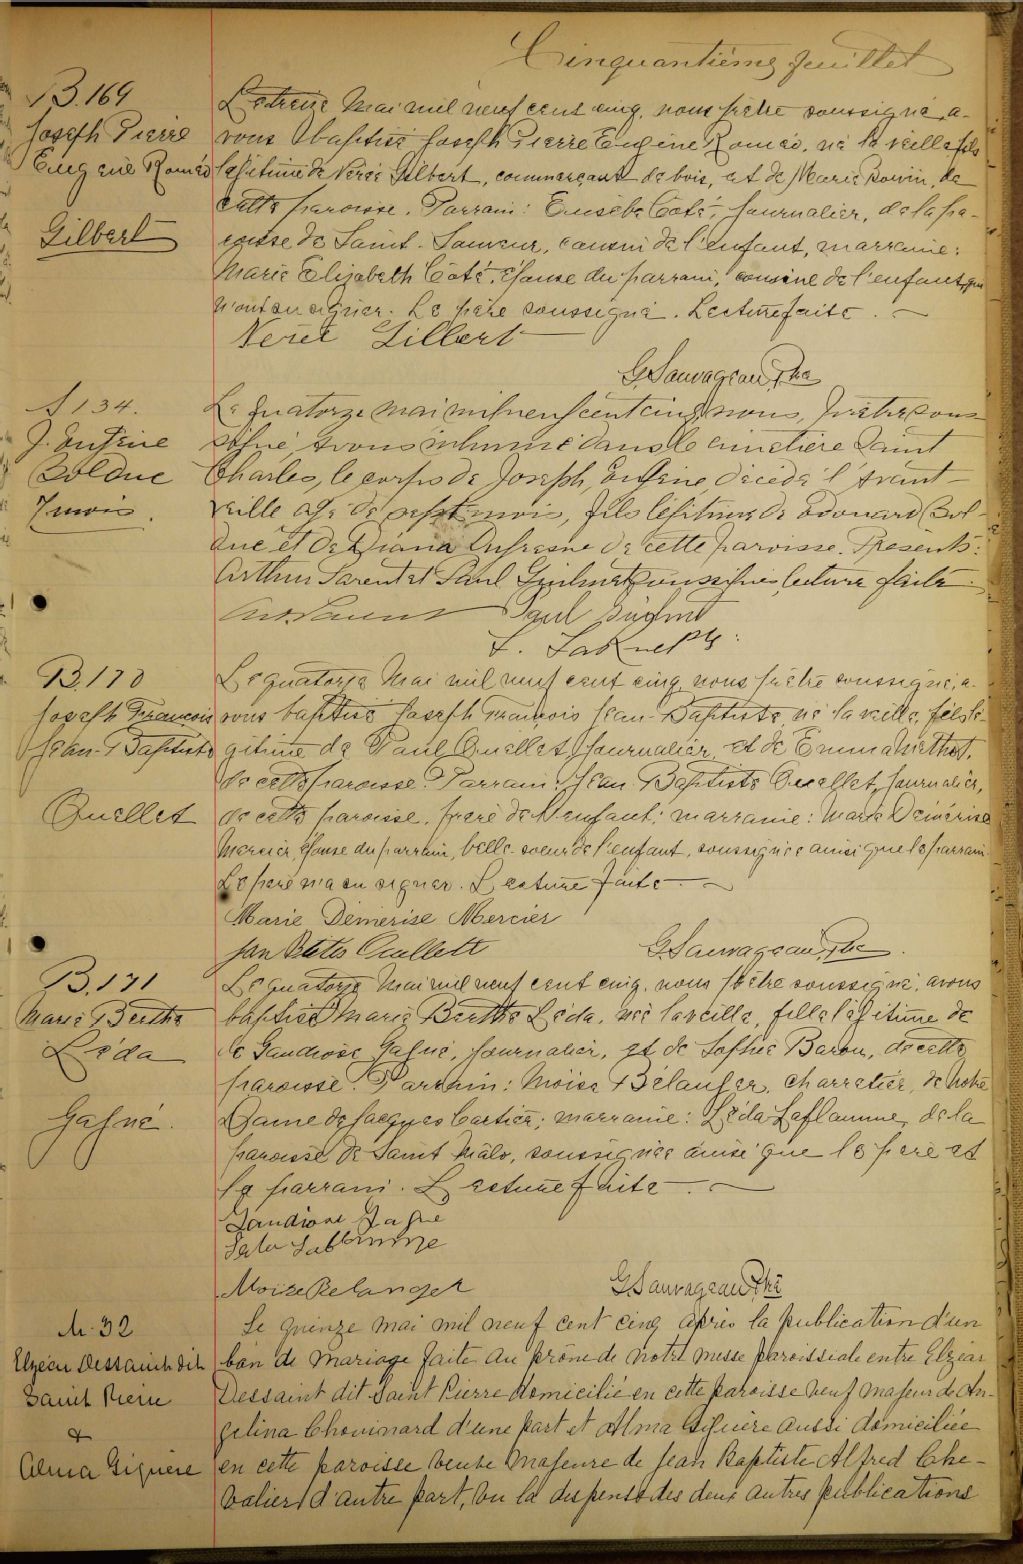 Cinquantième feuillet
B. 169
Joseph Pierre
Eugène Roméo
Gilbert
Le treize Mai mil neuf cent cinq, nous prêtre soussigné, a-
vons baptisé Joseph Pierre Eugène Roméo, né la veille, fils
légitime de Nérée Gilbert, commerçant de bois, et de Marie Boivin, de
cette paroisse. Parrain: Eusèbe Côté, journalier, de la pa-
roisse de Saint-Sauveur, cousin de l'enfant, marraine:
Marie Elizabeth Côté, épouse du parrain, cousine de l'enfant, qui
n'ont su signer. Le père soussigné. Lecture faite.
Nérée Gilbert
G. Sauvageau, Ptre
S 134.
J. Eugène
Bolduc
7 mois.
Le quatorze mai mil neuf cent cinq, nous, prêtre sous
signé, avons inhumé dans le cimetière Saint
Charles, le corps de Joseph, Eugène, décédé l'avant-
veille age de sept mois, fils légitime de Edouard Bol-
duc et de Diana Dufresne de cette paroisse. Présents:
Arthur Parent et Paul Guilmet soussignés, lecture faite.
Art. Parent Paul Guilmet
ptre
B. 170
Joseph François
Jean-Baptiste
Ouellet
Le quatorze Mai mil neuf cent cinq, nous prêtre soussigné, a-
vons baptisé Joseph François Jean-Baptiste, né la veille, fils lé-
gitime de Paul Ouellet, journalier, et de Emma Methot,
de cette paroisse. Parrain: Jean Baptiste Ouellet, journalier,
de cette paroisse, frère de l'enfant; marraine: Marie Démérise
Mercier, épouse du parrain, belle-soeur de l'enfant, soussignée ainsi que le parrain.
Le père n'a su signer. Lecture faite.
Marie Démerise Mercier
Jan Btites Ouellett
G. Sauvageau, Ptre.
B. 171
Marie Berthe
Léda
Gagné.
Le quatorze Mai mil neuf cent cinq, nous prêtre soussigné, avons
baptisé Marie Berthe Léda, née la veille, fille légitime de
de Gaudiose Gagné, journalier, et de Sophie Baron, de cette
paroisse. Parrain: Moïse Bélanger, charretier, de Notre
Dame de Jacques Cartier; marraine: Léda Laflamme, de la
paroisse de Saint Mâlo, soussignée ainsi que le père et
le parrain. Lecture faite.
Gaudiose Gagne
Leda Laflamme
Moïze Belanger
G. Sauvageau, Ptre
M. 32
Elzéar Dessaint dit
Saint Pierre
&
Alma Giguère
Le quinze mai mil neuf cent cinq après la publication d'un
ban de mariage faite au prône de notre messe paroissiale entre Elzéar
Dessaint dit Saint Pierre domicilié en cette paroisse veuf majeur de An-
gelina Chouinard d'une part et Alma Giguère aussi domiciliée
en cette paroisse veuve majeure de Jean Baptiste Alfred Che-
valier, d'autre part, vu la dispense des deux autres publications